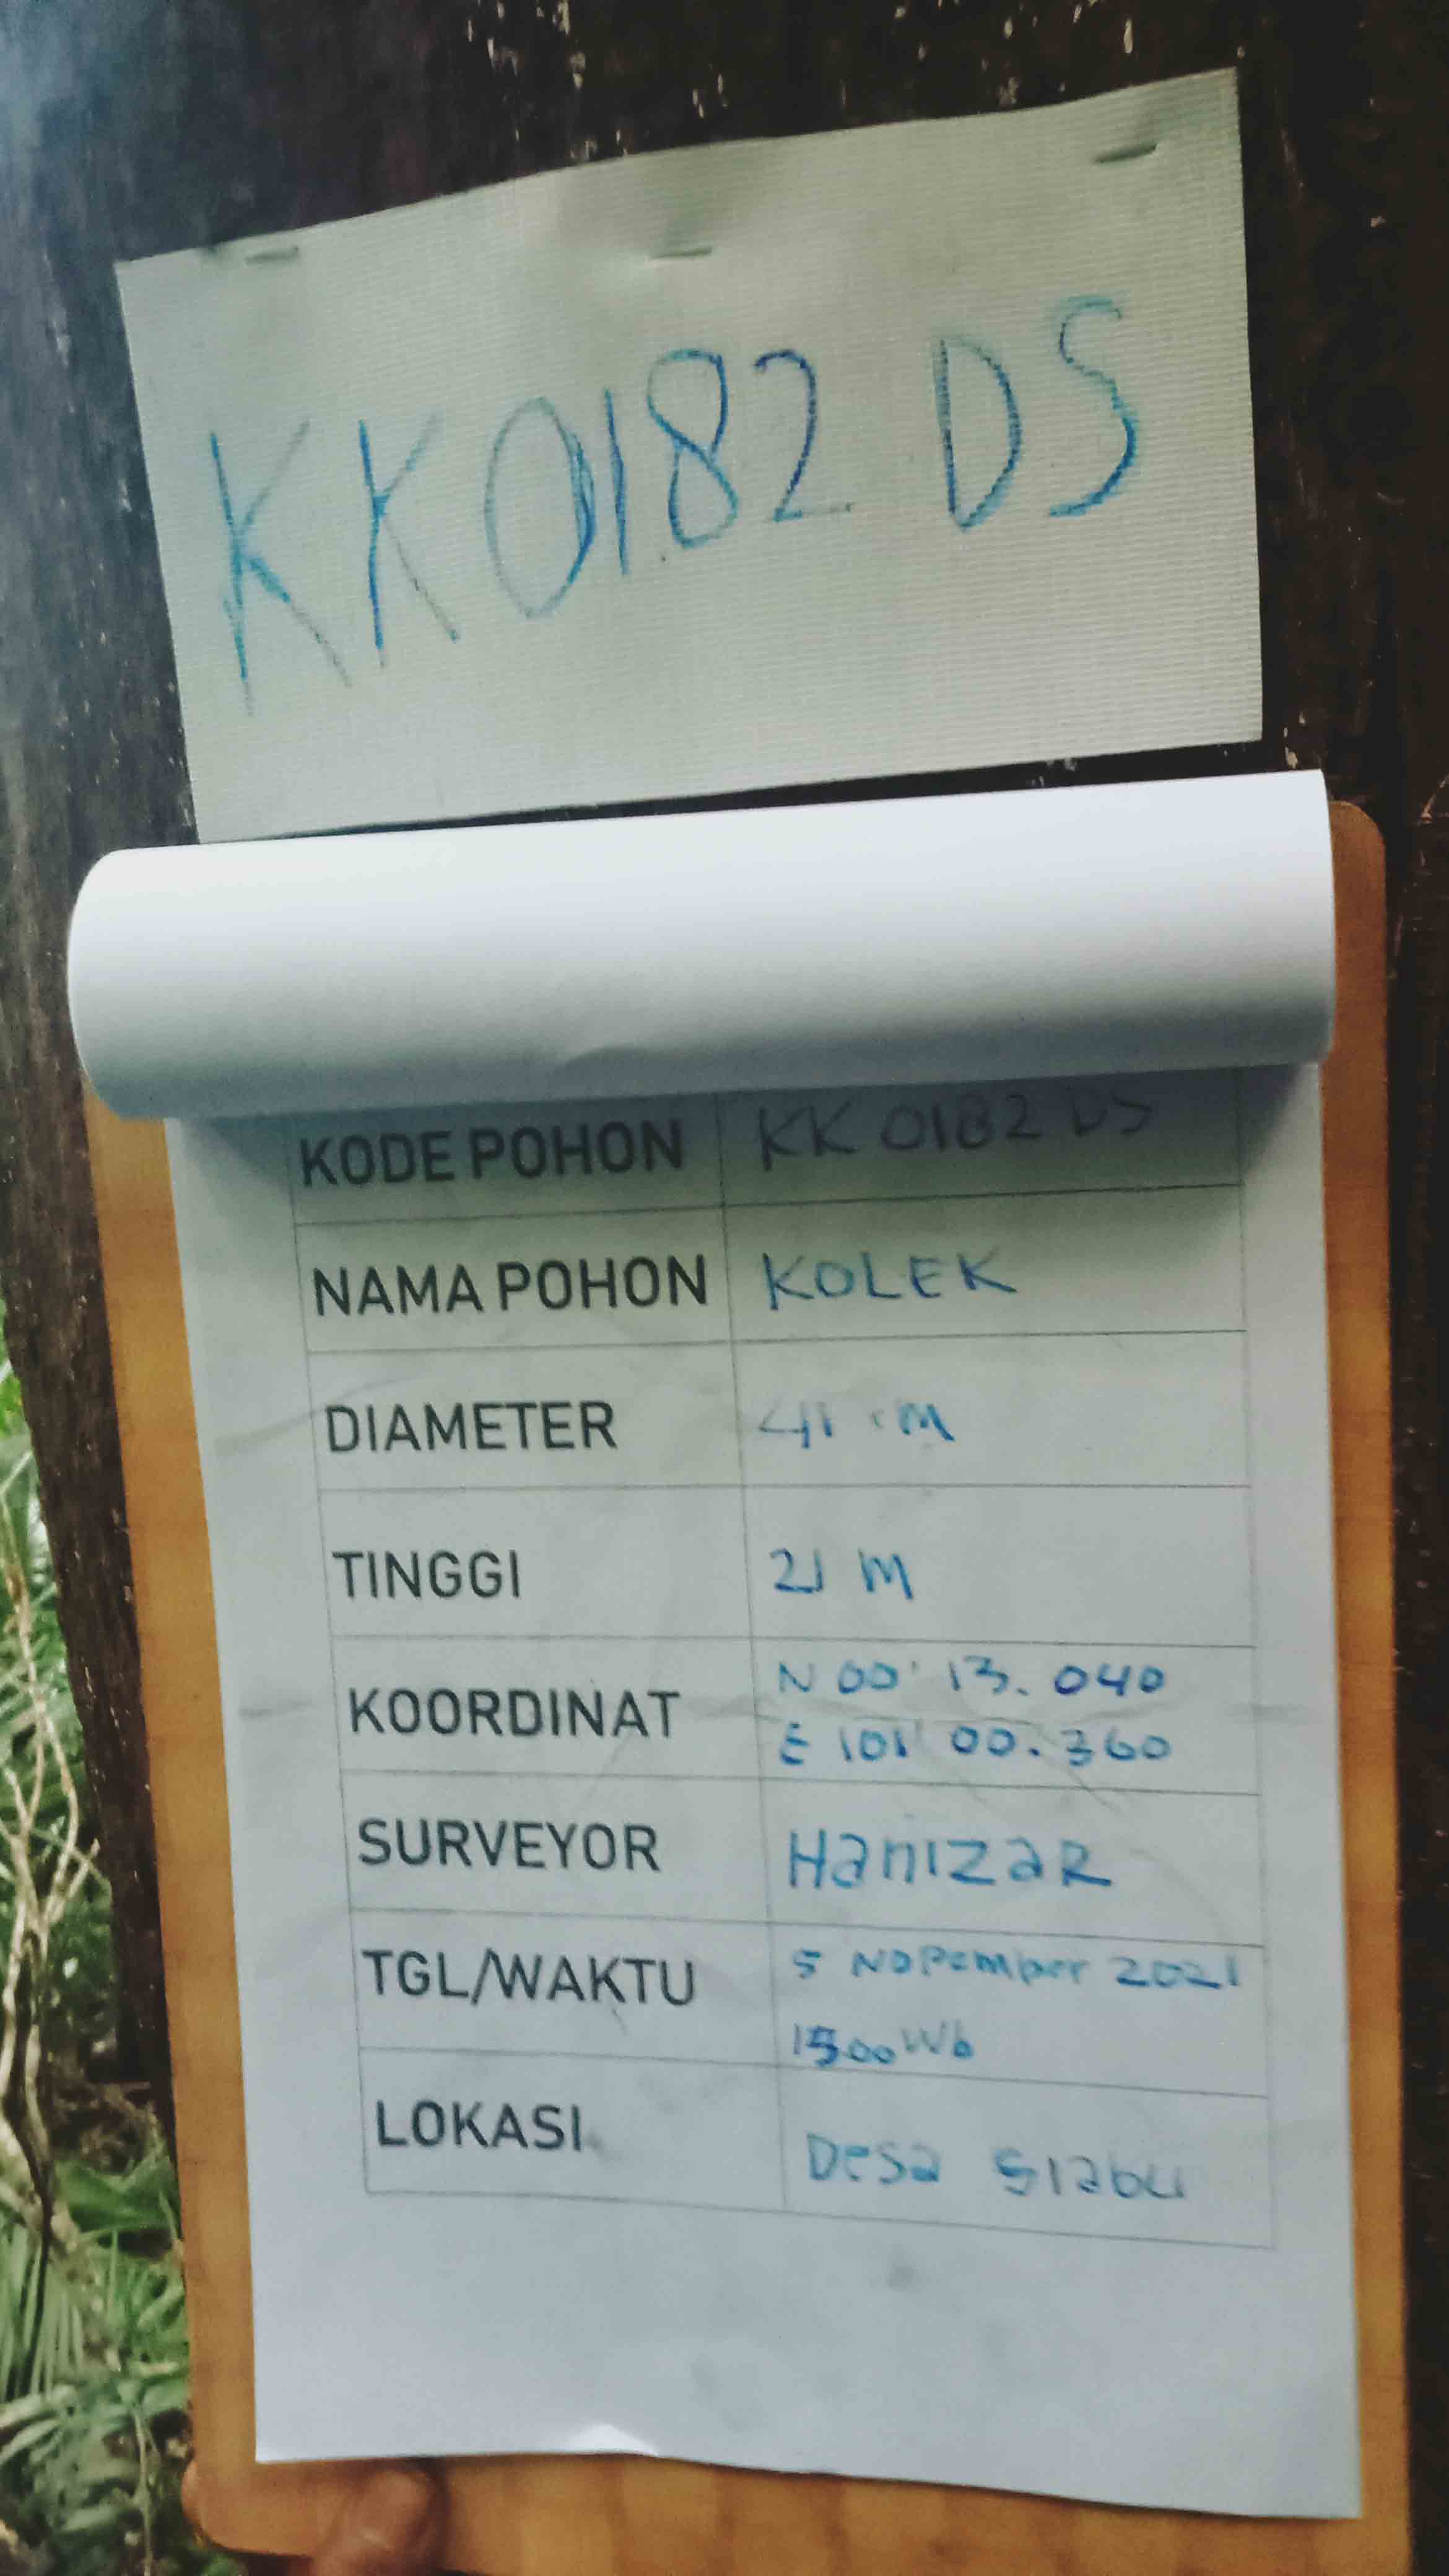 KK0182 DS
KODE POHON KK 0182 DS
NAMA POHON KOLEK
DIAMETER 41 cm
TINGGI 21 M
KOORDINAT N 00° 13. 040
E 101° 00. 360
SURVEYOR Hanizar
TGL/WAKTU 5 Nopember 2021
1500 Wb
LOKASI Desa Siabu